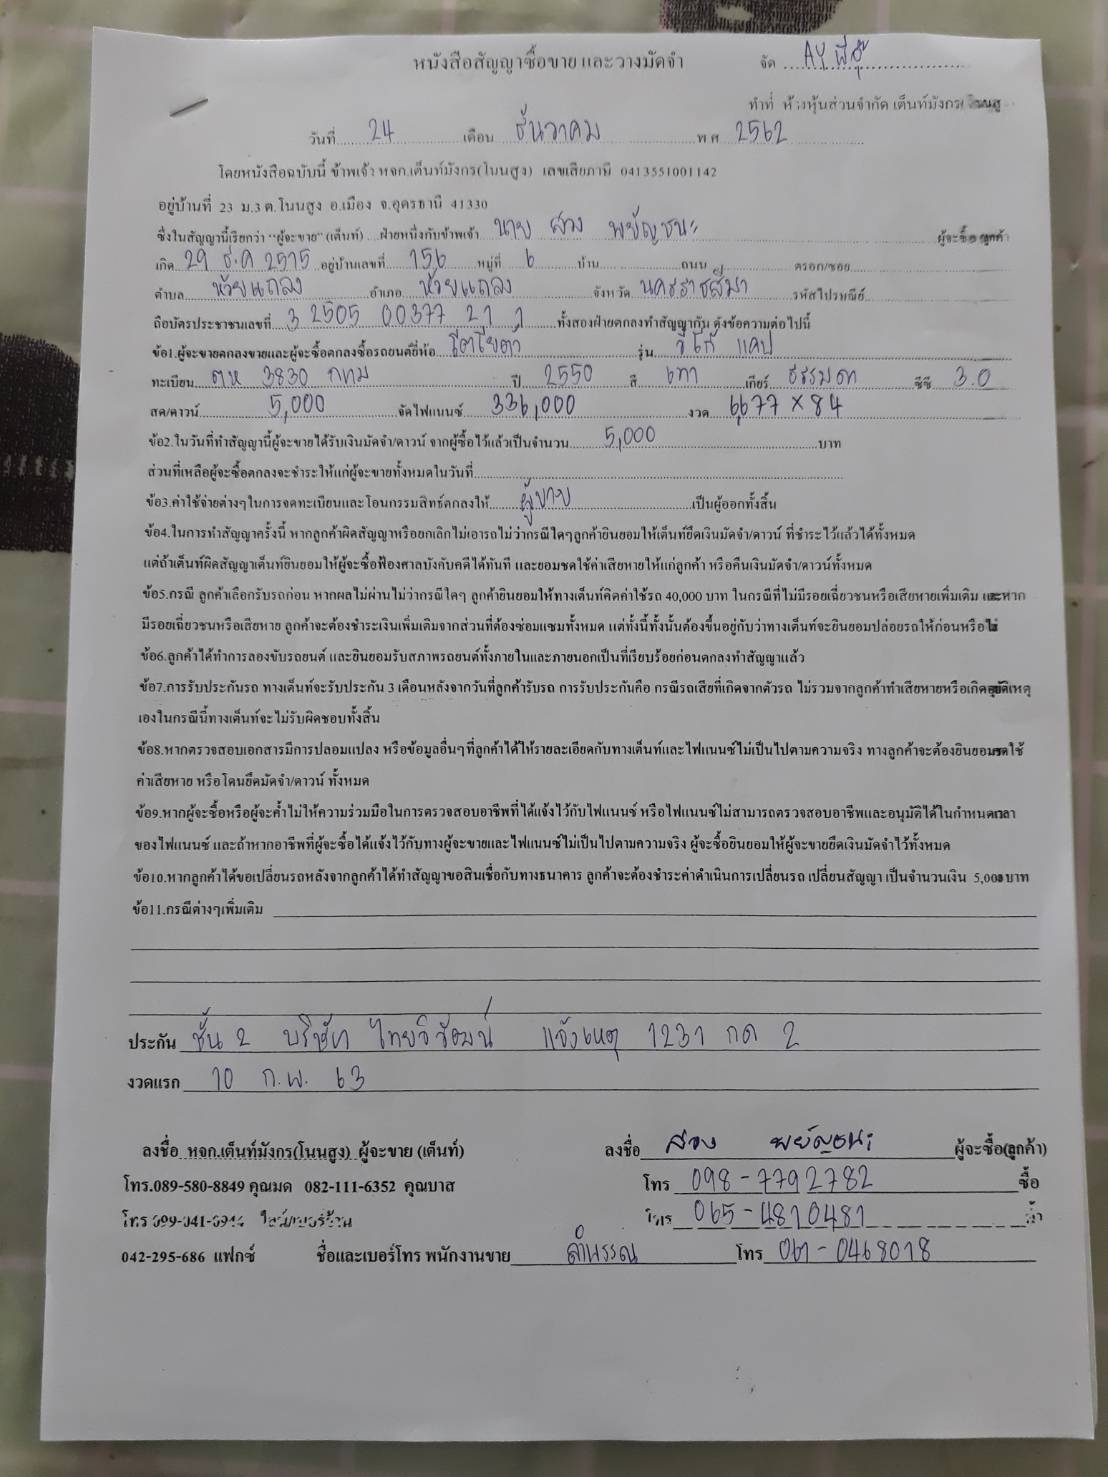 หนังสือสัญญาซื้อขาย และวางมัดจำ จัด AY
ทำที่ ห้างหุ้นส่วนจำกัด เต็นท์มังกร โนนสู
วันที่ 24 เดือน ธันวาคม พ.ศ 2562
โดยหนังสือฉบับนี้ ข้าพเจ้า หจก.เต็นท์มังกร(โนนสูง) เลขเสียภาษี 0413551001142
อยู่บ้านที่ 23 ม.3 ต.โนนสูง อ.เมือง จ.อุดรธานี 41330
ซึ่งในสัญญานี้เรียกว่า "ผู้จะขาย" (เต็นท์) ฝ่ายหนึ่งกับข้าพเจ้า นาย สวง พยัญชนะ ผู้จะซื้อ ลูกค้า
เกิด 29 ธ.ค 2515 อยู่บ้านเลขที่ 156 หมู่ที่ 6 บ้าน ถนน ตรอก/ซอย
ตำบล ห้วยแถลง อำเภอ ห้วยแถลง จังหวัด นครราชสีมา รหัสไปรษณีย์
ถือบัตรประชาชนเลขที่ 3 2505 00377 21 1 ทั้งสองฝ่ายตกลงทำสัญญากัน ดังข้อความต่อไปนี้
ข้อ1.ผู้จะขายตกลงขายและผู้จะซื้อตกลงซื้อรถยนต์ยี่ห้อ โตโยต้า รุ่น วีโก้ แคป
ทะเบียน ตห 3830 กทม ปี 2550 สี เทา เกียร์ ธรรมดา ซีซี 3.0
สด/ดาวน์ 5,000 จัดไฟแนนซ์ 336,000 งวด 6,677 x 84
ข้อ2.ในวันที่ทำสัญญานี้ผู้จะขายได้รับเงินมัดจำ/ดาวน์ จากผู้ซื้อไว้แล้วเป็นจำนวน 5,000 บาท
ส่วนที่เหลือผู้จะซื้อตกลงจะชำระให้แก่ผู้จะขายทั้งหมดในวันที่
ข้อ3.ค่าใช้จ่ายต่างๆในการจดทะเบียนและโอนกรรมสิทธ์ตกลงให้ ผู้ขาย เป็นผู้ออกทั้งสิ้น
ข้อ4.ในการทำสัญญาครั้งนี้ หากลูกค้าผิดสัญญาหรือยกเลิกไม่เอารถไม่ว่ากรณีใดๆลูกค้ายินยอมให้เต็นท์ยึดเงินมัดจำ/ดาวน์ ที่ชำระไว้แล้วได้ทั้งหมด
แต่ถ้าเต็นท์ผิดสัญญาเต็นท์ยินยอมให้ผู้จะซื้อฟ้องศาลบังคับคดีได้ทันที และยอมชดใช้ค่าเสียหายให้แก่ลูกค้า หรือคืนเงินมัดจำ/ดาวน์ทั้งหมด
ข้อ5.กรณี ลูกค้าเลือกรับรถก่อน หากผลไม่ผ่านไม่ว่ากรณีใดๆ ลูกค้ายินยอมให้ทางเต็นท์คิดค่าใช้รถ 40,000 บาท ในกรณีที่ไม่มีรอยเฉี่ยวชนหรือเสียหายเพิ่มเติม และหาก
มีรอยเฉี่ยวชนหรือเสียหาย ลูกค้าจะต้องชำระเงินเพิ่มเติมจากส่วนที่ต้องซ่อมแซมทั้งหมด แต่ทั้งนี้ทั้งนั้นต้องขึ้นอยู่กับว่าทางเต็นท์จะยินยอมปล่อยรถให้ก่อนหรือไม่
ข้อ6.ลูกค้าได้ทำการลองขับรถยนต์ และยินยอมรับสภาพรถยนต์ทั้งภายในและภายนอกเป็นที่เรียบร้อยก่อนตกลงทำสัญญาแล้ว
ข้อ7.การรับประกันรถ ทางเต็นท์จะรับประกัน 3 เดือนหลังจากวันที่ลูกค้ารับรถ การรับประกันคือ กรณีรถเสียที่เกิดจากตัวรถ ไม่รวมจากลูกค้าทำเสียหายหรือเกิดอุบัติเหตุ
เองในกรณีนี้ทางเต็นท์จะไม่รับผิดชอบทั้งสิ้น
ข้อ8.หากตรวจสอบเอกสารมีการปลอมแปลง หรือข้อมูลอื่นๆที่ลูกค้าได้ให้รายละเอียดกับทางเต็นท์และไฟแนนซ์ไม่เป็นไปตามความจริง ทางลูกค้าจะต้องยินยอมชดใช้
ค่าเสียหาย หรือโดนยึดมัดจำ/ดาวน์ ทั้งหมด
ข้อ9.หากผู้จะซื้อหรือผู้จะค้ำไม่ให้ความร่วมมือในการตรวจสอบอาชีพที่ได้แจ้งไว้กับไฟแนนซ์ หรือไฟแนนซ์ไม่สามารถตรวจสอบอาชีพและอนุมัติได้ในกำหนดเวลา
ของไฟแนนซ์ และถ้าหากอาชีพที่ผู้จะซื้อได้แจ้งไว้กับทางผู้จะขายและไฟแนนซ์ไม่เป็นไปตามความจริง ผู้จะซื้อยินยอมให้ผู้จะขายยึดเงินมัดจำไว้ทั้งหมด
ข้อ10.หากลูกค้าได้ขอเปลี่ยนรถหลังจากลูกค้าได้ทำสัญญาขอสินเชื่อกับทางธนาคาร ลูกค้าจะต้องชำระค่าดำเนินการเปลี่ยนรถ เปลี่ยนสัญญา เป็นจำนวนเงิน 5,000 บาท
ข้อ11.กรณีต่างๆเพิ่มเติม
ประกัน ชั้น 2 บริษัท ไทยวิวัฒน์ แจ้งเหตุ 1231 กด 2
งวดแรก 10 ก.พ. 63
ลงชื่อ หจก.เต็นท์มังกร(โนนสูง) ผู้จะขาย (เต็นท์) ลงชื่อ สวง พยัญชนะ ผู้จะซื้อ(ลูกค้า)
โทร.089-580-8849 คุณมด 082-111-6352 คุณบาส โทร 098-7792782 ซื้อ
โทร 065-4810481 ค้ำ
042-295-686 แฟกซ์ ชื่อและเบอร์โทร พนักงานขาย ลำพรรณ โทร 061-0468018